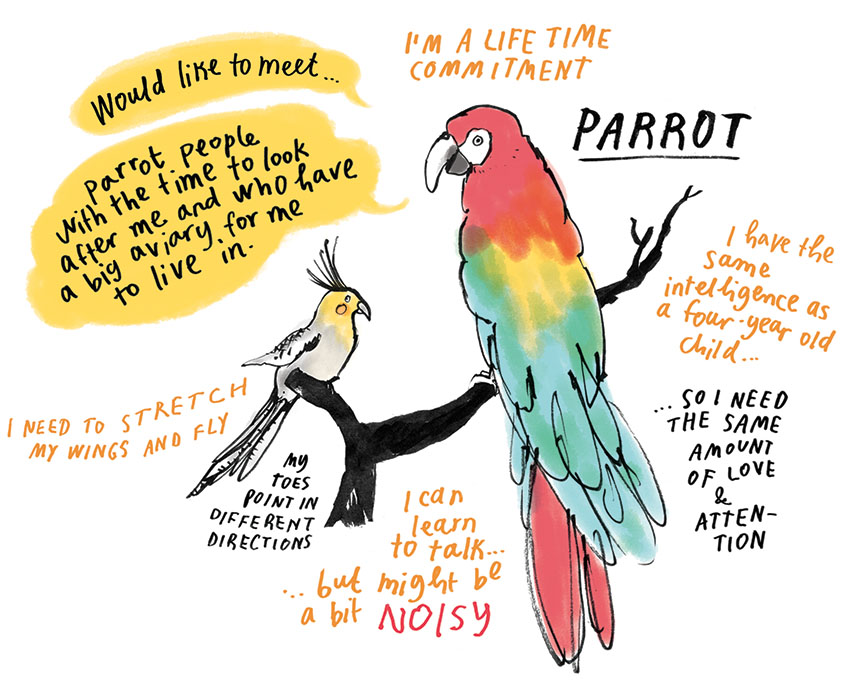 Would like to meet...
parrot people
with the time to look
after me and who have
a big aviary for me
to live in.
I'M A LIFE TIME
COMMITMENT
PARROT
I have the
same
intelligence as
a four-year old
child...
... SO I NEED
THE SAME
AMOUNT
OF LOVE
&
ATTEN-
TION
I NEED TO STRETCH
MY WINGS AND FLY
MY
TOES
POINT IN
DIFFERENT
DIRECTIONS
I can
learn
to talk...
... but might be
a bit NOISY